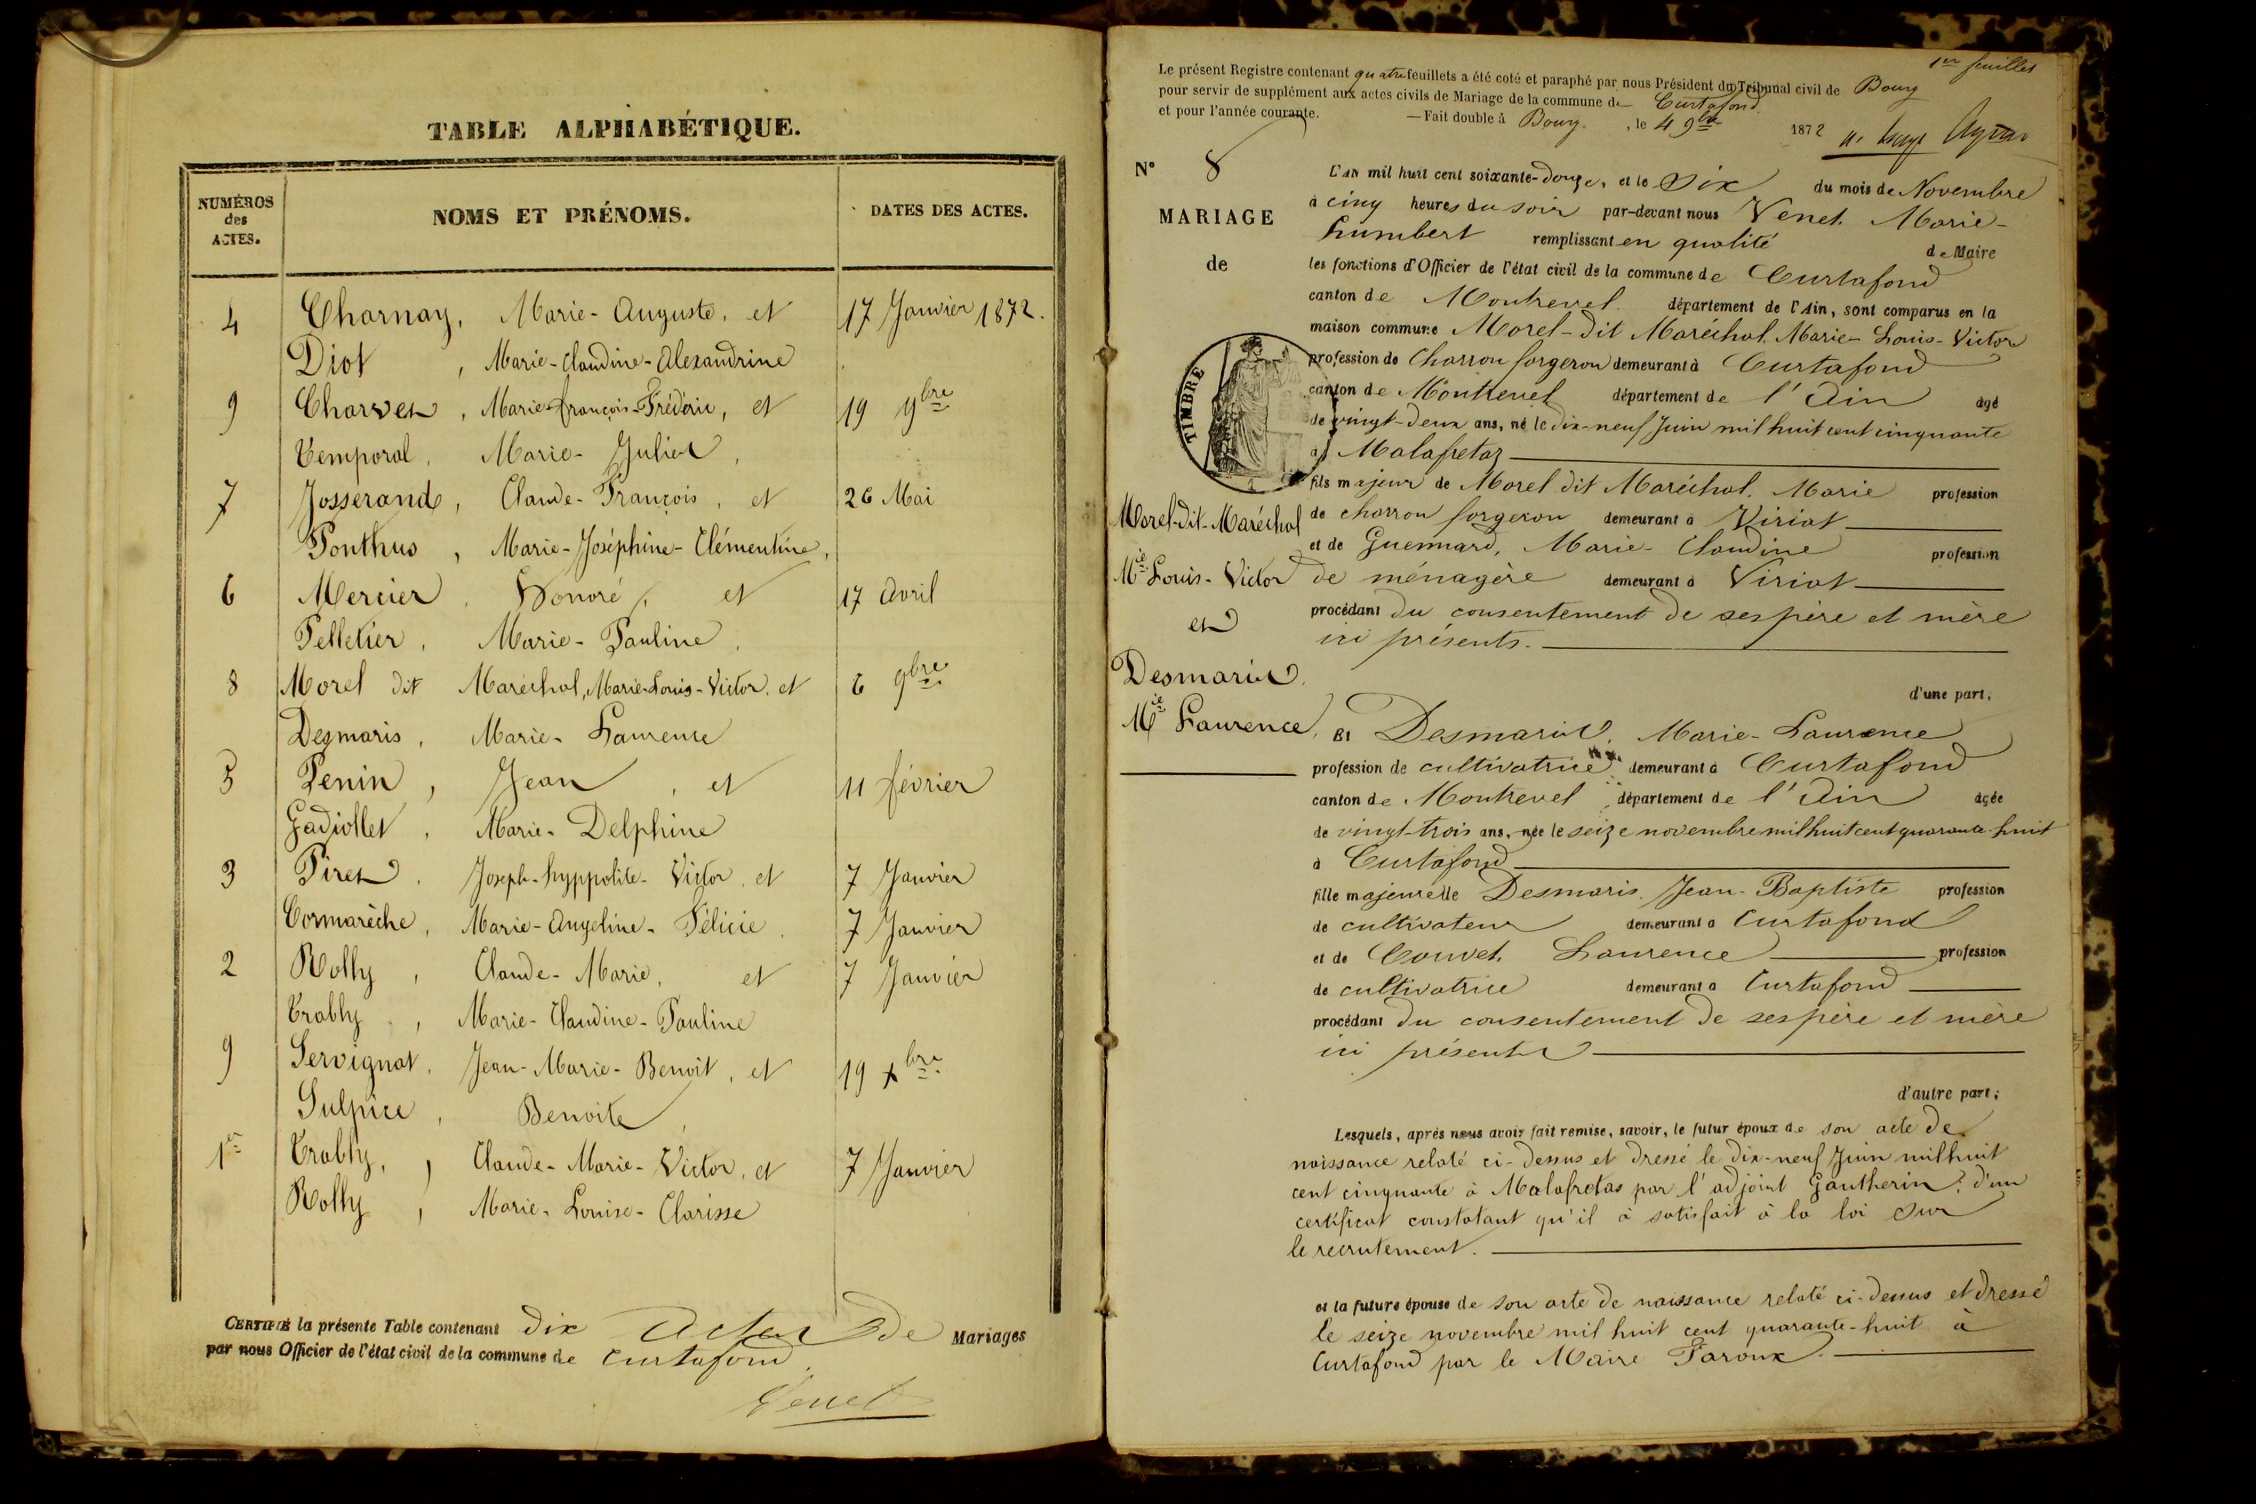 TABLE ALPHABÉTIQUE.
NUMÉROS des ACTES.
NOMS ET PRÉNOMS.
DATES DES ACTES.
4 Charnay, Marie-Auguste, et 17 Janvier 1872.
Diot, Marie-Claudine-Alexandrine
9 Charvet, Marie-françois-Frédéric, et 19 9bre
Temporal, Marie-Juliet,
7 Josserand, Claude-François, et 26 Mai
Ponthus, Marie-Joséphine-Clémentine,
6 Mercier, Honoré, et 17 Avril
Pelletier, Marie-Pauline,
8 Morel dit Maréchal, Marie-Louis-Victor, et 6 9bre
Desmaris, Marie-Laurence
5 Penin, Jean, et 11 février
Gadiollet, Marie-Delphine
3 Piret, Joseph-hyppolite-Victor, et 7 Janvier
Cormarèche, Marie-Angeline-Félicie, 7 Janvier
2 Rolly, Claude-Marie, et 7 Janvier
Trably, Marie-Claudine-Pauline
9 Servignat, Jean-Marie-Benoit, et 19 xbre
Sulpice, Benoite
1er Trably, Claude-Marie-Victor, et 7 Janvier
Rolly, Marie-Louise-Clarisse
CERTIFIÉ la présente Table contenant dix Actes de Mariages
par nous Officier de l'état civil de la commune de Curtafond.
Venet
1er feuillet
Le présent Registre contenant quatre feuillets a été coté et paraphé par nous Président du Tribunal civil de Bourg
pour servir de supplément aux actes civils de Mariage de la commune de Curtafond
et pour l'année courante. — Fait double à Bourg, le 4 9bre 1872
N° 8
MARIAGE
de
TIMBRE
Morel-dit-Maréchal
Mie Louis-Victor
et
Desmaris,
Mie Laurence,
L'AN mil huit cent soixante-douze, et le Six du mois de Novembre
à cinq heures du soir par-devant nous Venet Marie-
humbert remplissant en qualité de Maire
les fonctions d'Officier de l'état civil de la commune de Curtafond
canton de Montrevel département de l'Ain, sont comparus en la
maison commune Morel-dit Maréchal, Marie-Louis-Victor
profession de Charron forgeron demeurant à Curtafond
canton de Montrevel département de l'Ain âgé
de vingt-deux ans, né le dix-neuf Juin mil huit cent cinquante
à Malafretaz
fils majeur de Morel dit Maréchal, Marie profession
de charron forgeron demeurant à Viriat
et de Guennard, Marie-Claudine profession
de ménagère demeurant à Viriat
procédant du consentement de ses père et mère
ici présents.
d'une part,
Et Desmaris, Marie-Laurence
profession de cultivatrice demeurant à Curtafond
canton de Montrevel département de l'Ain âgée
de vingt-trois ans, née le seize novembre mil huit cent quarante-huit
à Curtafond
fille majeure de Desmaris, Jean-Baptiste profession
de cultivateur demeurant à Curtafond
et de Couvet Laurence profession
de cultivatrice demeurant à Curtafond
procédant du consentement de ses père et mère
ici présents
d'autre part;
Lesquels, après nous avoir fait remise, savoir, le futur époux de son acte de
naissance relaté ci-dessus et dressé le dix-neuf Juin mil huit
cent cinquante à Malafretas par l'adjoint Gautherin; d'un
certificat constatant qu'il à satisfait à la loi sur
le recrutement.
et la future épouse de son acte de naissance relaté ci-dessus et dressé
le seize novembre mil huit cent quarante-huit à
Curtafond par le Maire Faroux.